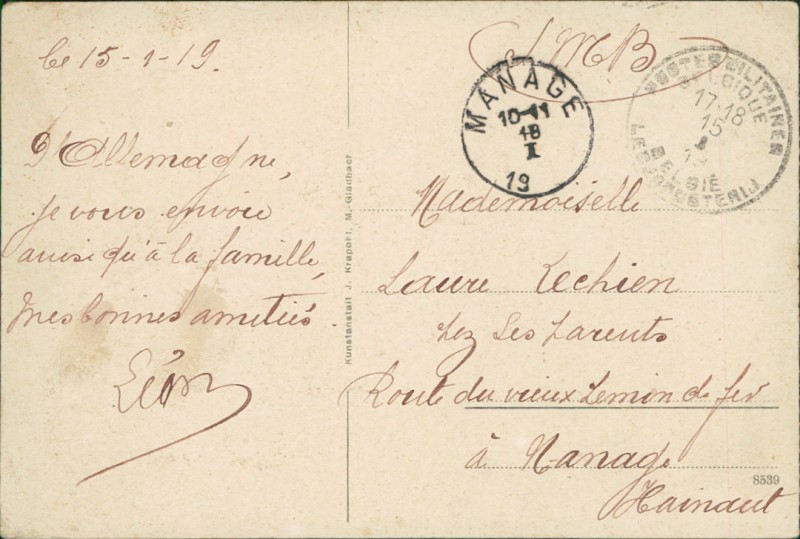 Le 15-1-19.
D'Allemagne,
je vous envoie
ainsi qu'à la famille,
mes bonnes amitiés
Léon
Kunstanstalt J. Krapohl, M.-Gladbach
S.M.B
MANAGE
10-11
18
I
19
POSTES MILITAIRES
BELGIQUE
17-18
15
I
19
BELGIE
LEGERPOSTERIJ
Mademoiselle
Laure Lechien
chez Ses Parents
Route du vieux Chemin de fer
à Manage
Hainaut
8539